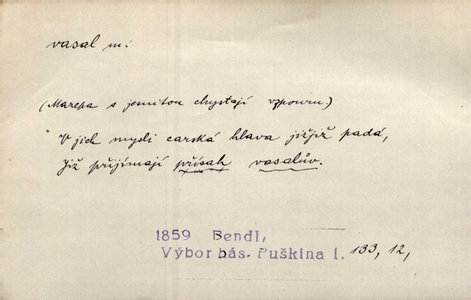 vasal m:
(Mazepa s jesuitou chystají vzpouru)
V jich mysli carská hlava jižjiž padá,
Již přijímají přísah vasalův.
1859 Bendl,
Výbor bás. Puškina 1. 133, 12,